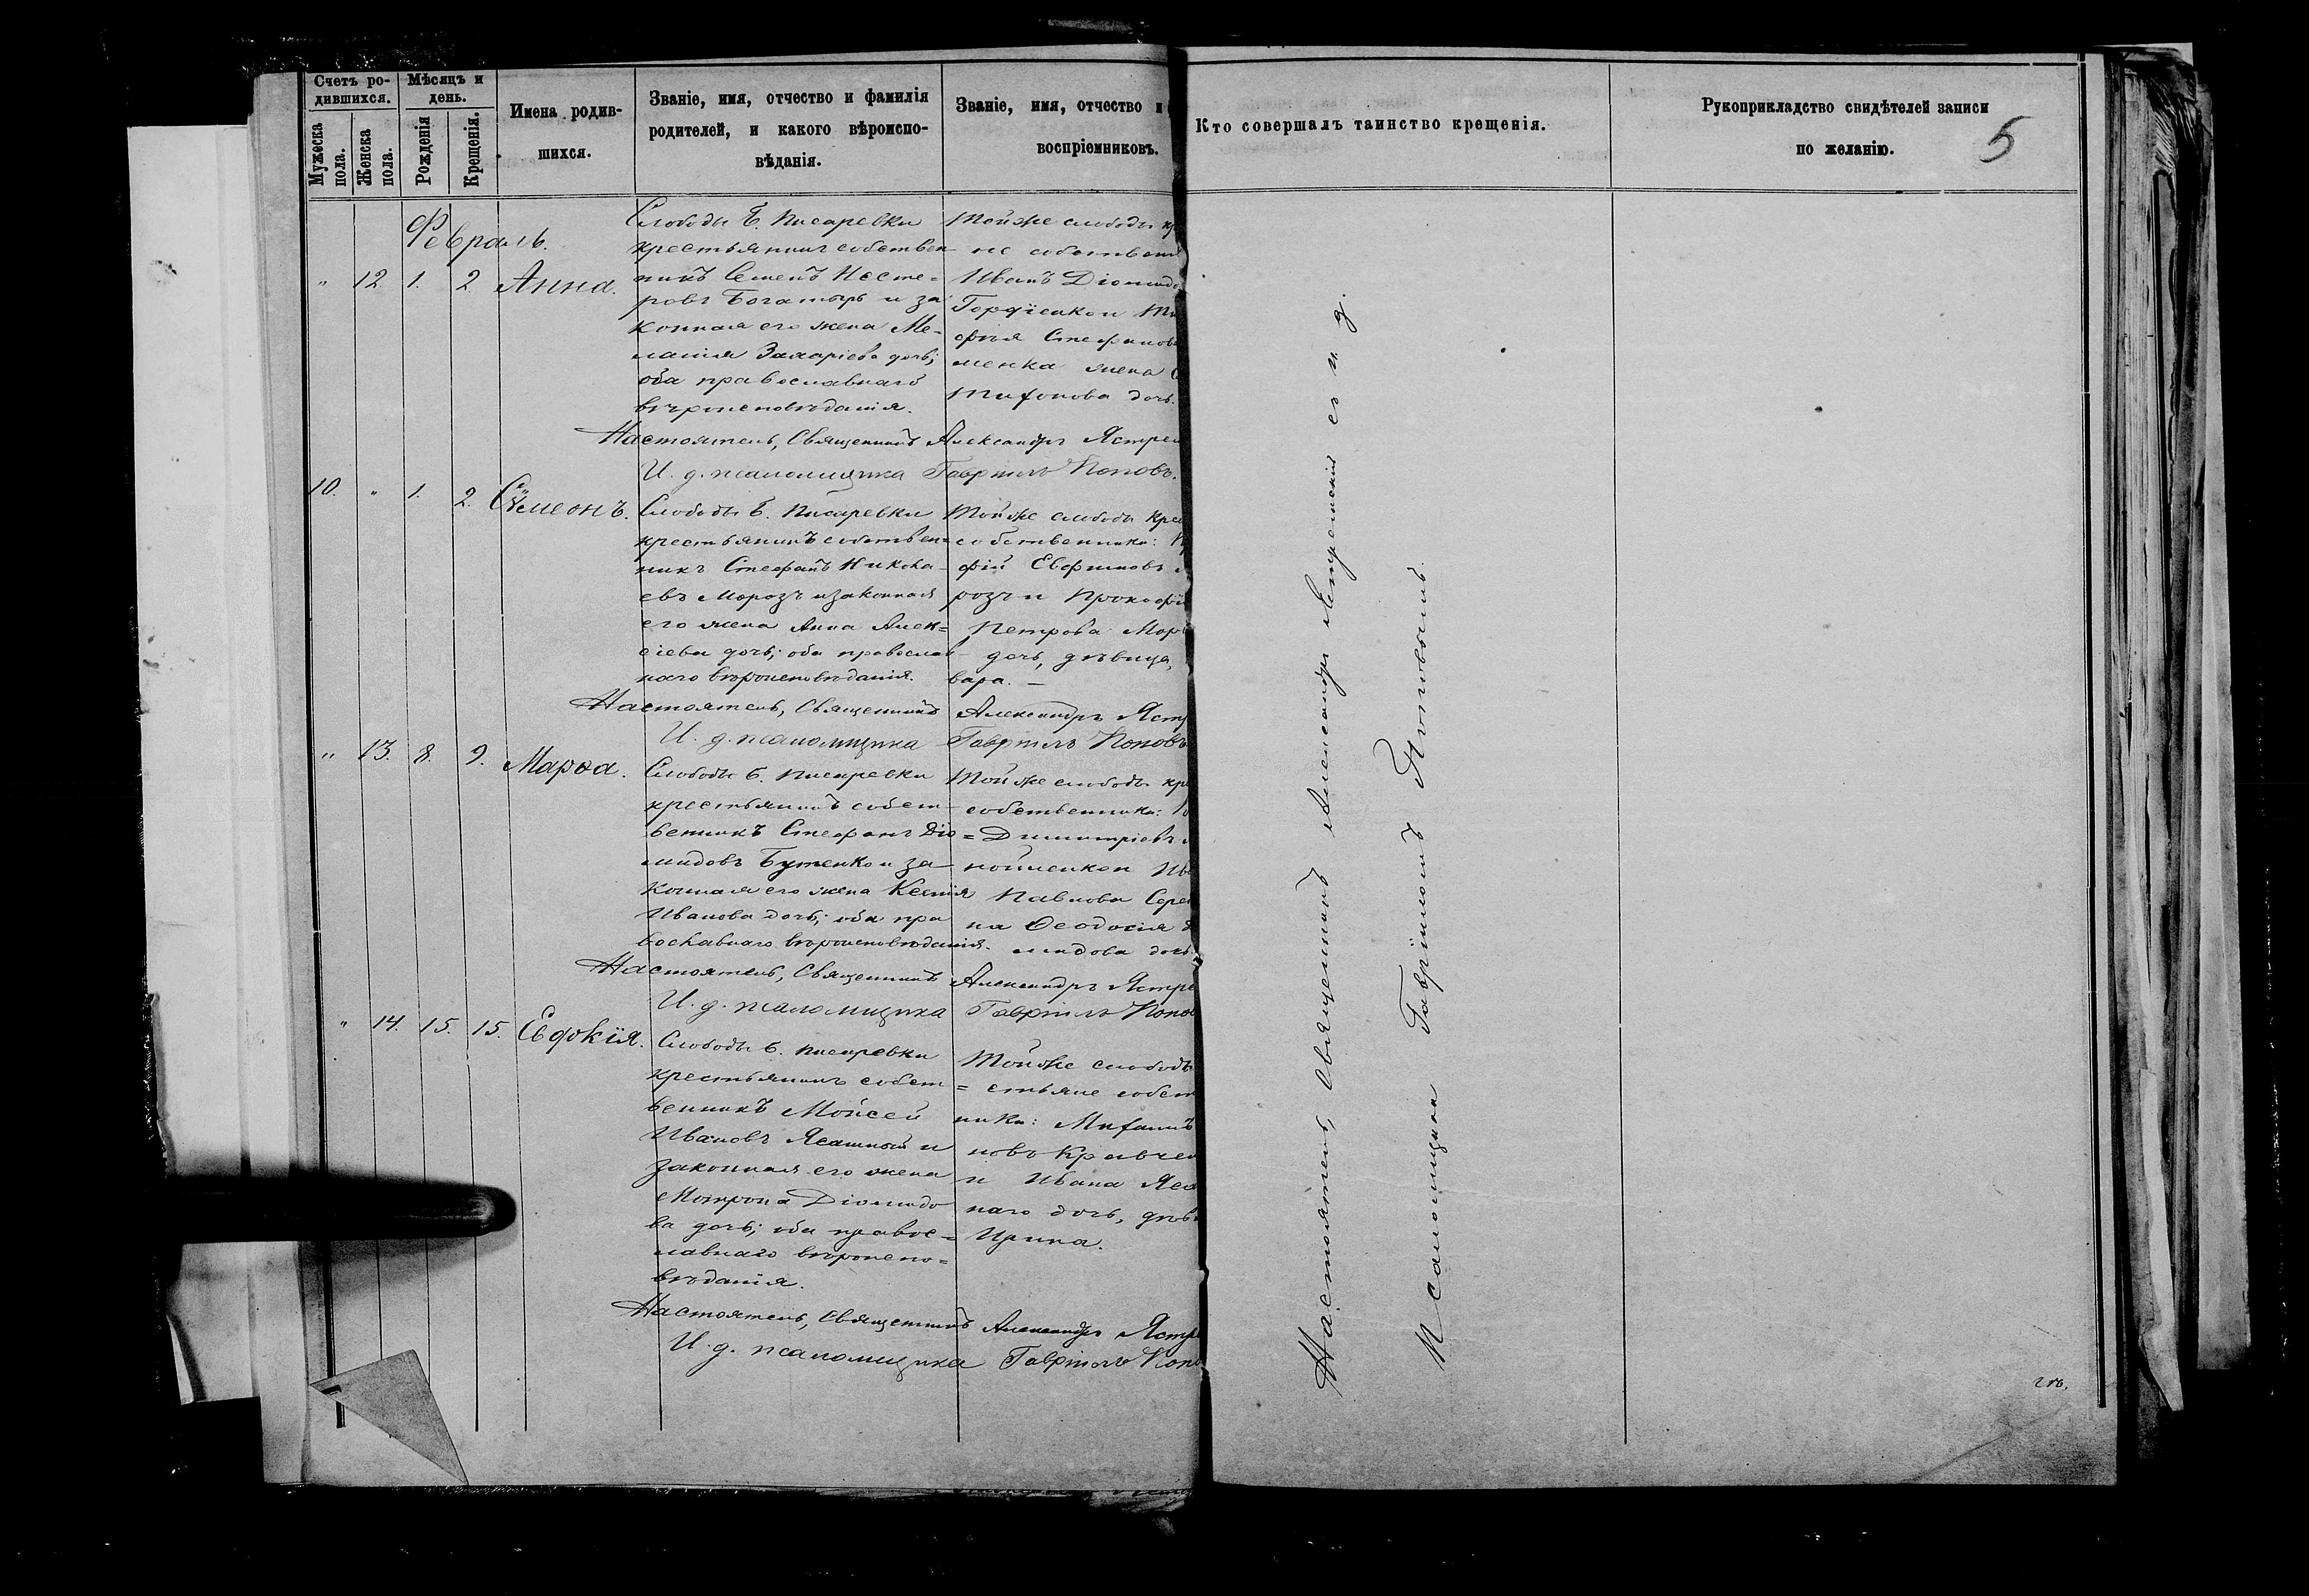 Счетъ ро-
дившихся.
Мужеска
пола.
Женска
пола.
Мѣсяцъ и
день.
Рожденія
Крещенія.
Имена родив-
шихся.
Званіе, имя, отчество и фамилія
родителей, и какого вѣроиспо-
вѣданія.
Званіе, имя, отчество и
воспріемниковъ.
Кто совершалъ таинство крещенія.
Рукоприкладство свидѣтелей записи
по желанію.
5
Февраль.
" 12. 1. 2 Анна.
Слободы Б. Писаревки
крестьянинъ собствен-
никъ Семенъ Несте-
ровъ Богатырь и за
конная его жена Ме-
ланія Захаріева дочь;
оба православнаго
вѣроисповѣданія.
Той же слободы кр
не собствен
Иванъ Діомидо
Гордіенко и
Стефанов
менка жена
дочь.
Настоятель, Священникъ Александръ Ястрем
И. д. псаломщика Гавріилъ Поповъ.
10. " 1. 2. Сѵмеонъ.
Слободы Б. Писаревки
крестьянинъ собствен=
никъ Стефанъ Никола-
евъ Морозъ и законная
его жена Анна Алек=
сіева дочь; оба православ-
наго вѣроисповѣданія.
Той же слободы крес
собственники:
фій Евфимовъ М
розъ и Прокофі
Петрова Мор
дочь, дѣвица,
вара. —
Настоятель, Священникъ Александръ Яст
И. д. псаломщика Гавріилъ Поповъ
" 13. 8. 9. Марѳа.
Слободы Б. Писаревки
крестьянинъ собст-
венникъ Стефанъ Діо=
мидовъ Бутенко и за
конная его жена Ксенія
Иванова дочь; оба пра
вославнаго вѣроисповѣданія.
Той же слободы кре
собственники:
Димитріевъ
Павлова
на Ѳеодосія Д
мидова дочь.
Настоятель, Священникъ Александръ Ястре
И. д. псаломщика Гавріилъ Попов
" 14. 15. 15. Евдокія.
Слободы Б. Писаревки
крестьянинъ собст=
венникъ Мойсей
Ивановъ Ясашный и
законная его жена
Матрона Діомидо
ва дочь; оба правос=
лавнаго вѣроиспо=
вѣданія.
Той же слободы
стьяне собст
ники:
новъ Кравчен
и Ивана Яса
наго дочь, дѣв
Ирина.
Настоятель, Священникъ Александръ Ястр
И. д. псаломщика Гавріилъ Попо
Настоятель, Священникъ Александръ Ястремскій съ и. д.
Псаломщика Гавріиломъ Поповымъ.